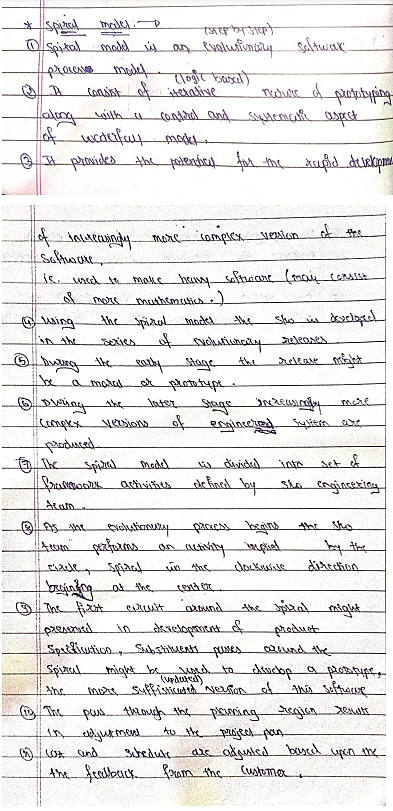 * Spiral model :→
(step by step)
① Spiral model is an evolutionary software
process model.
(logic based)
② It consist of iterative nature of prototyping
along with a control and systematic aspect
of waterfall model.
③ It provides the potential for the rapid developmen
of increasingly more complex version of the
Software,
ie. used to make heavy software (may consist
of more mathematics.)
④ Using the spiral model the s/w is developed
in the series of evolutionary releases
⑤ During the early stage the release might
be a model or prototype.
⑥ During the later stage increasingly more
complex versions of engineered system are
produced.
⑦ The spiral model is divided into set of
framework activities defined by s/w engineering
team.
⑧ As the evolutionary process begins the s/w
team performs an activity implied by the
circle, spiral in the clockwise direction
beginning at the center.
⑨ The first circuit around the spiral might
in development of product
Specification, passes around the
Spiral might be used to develop a prototype,
(updated)
the more version of this software
⑩ The pass through the planning region result
in adjustment to the project pan
cost and schedule are adjusted based upon the
the feedback from the customer.